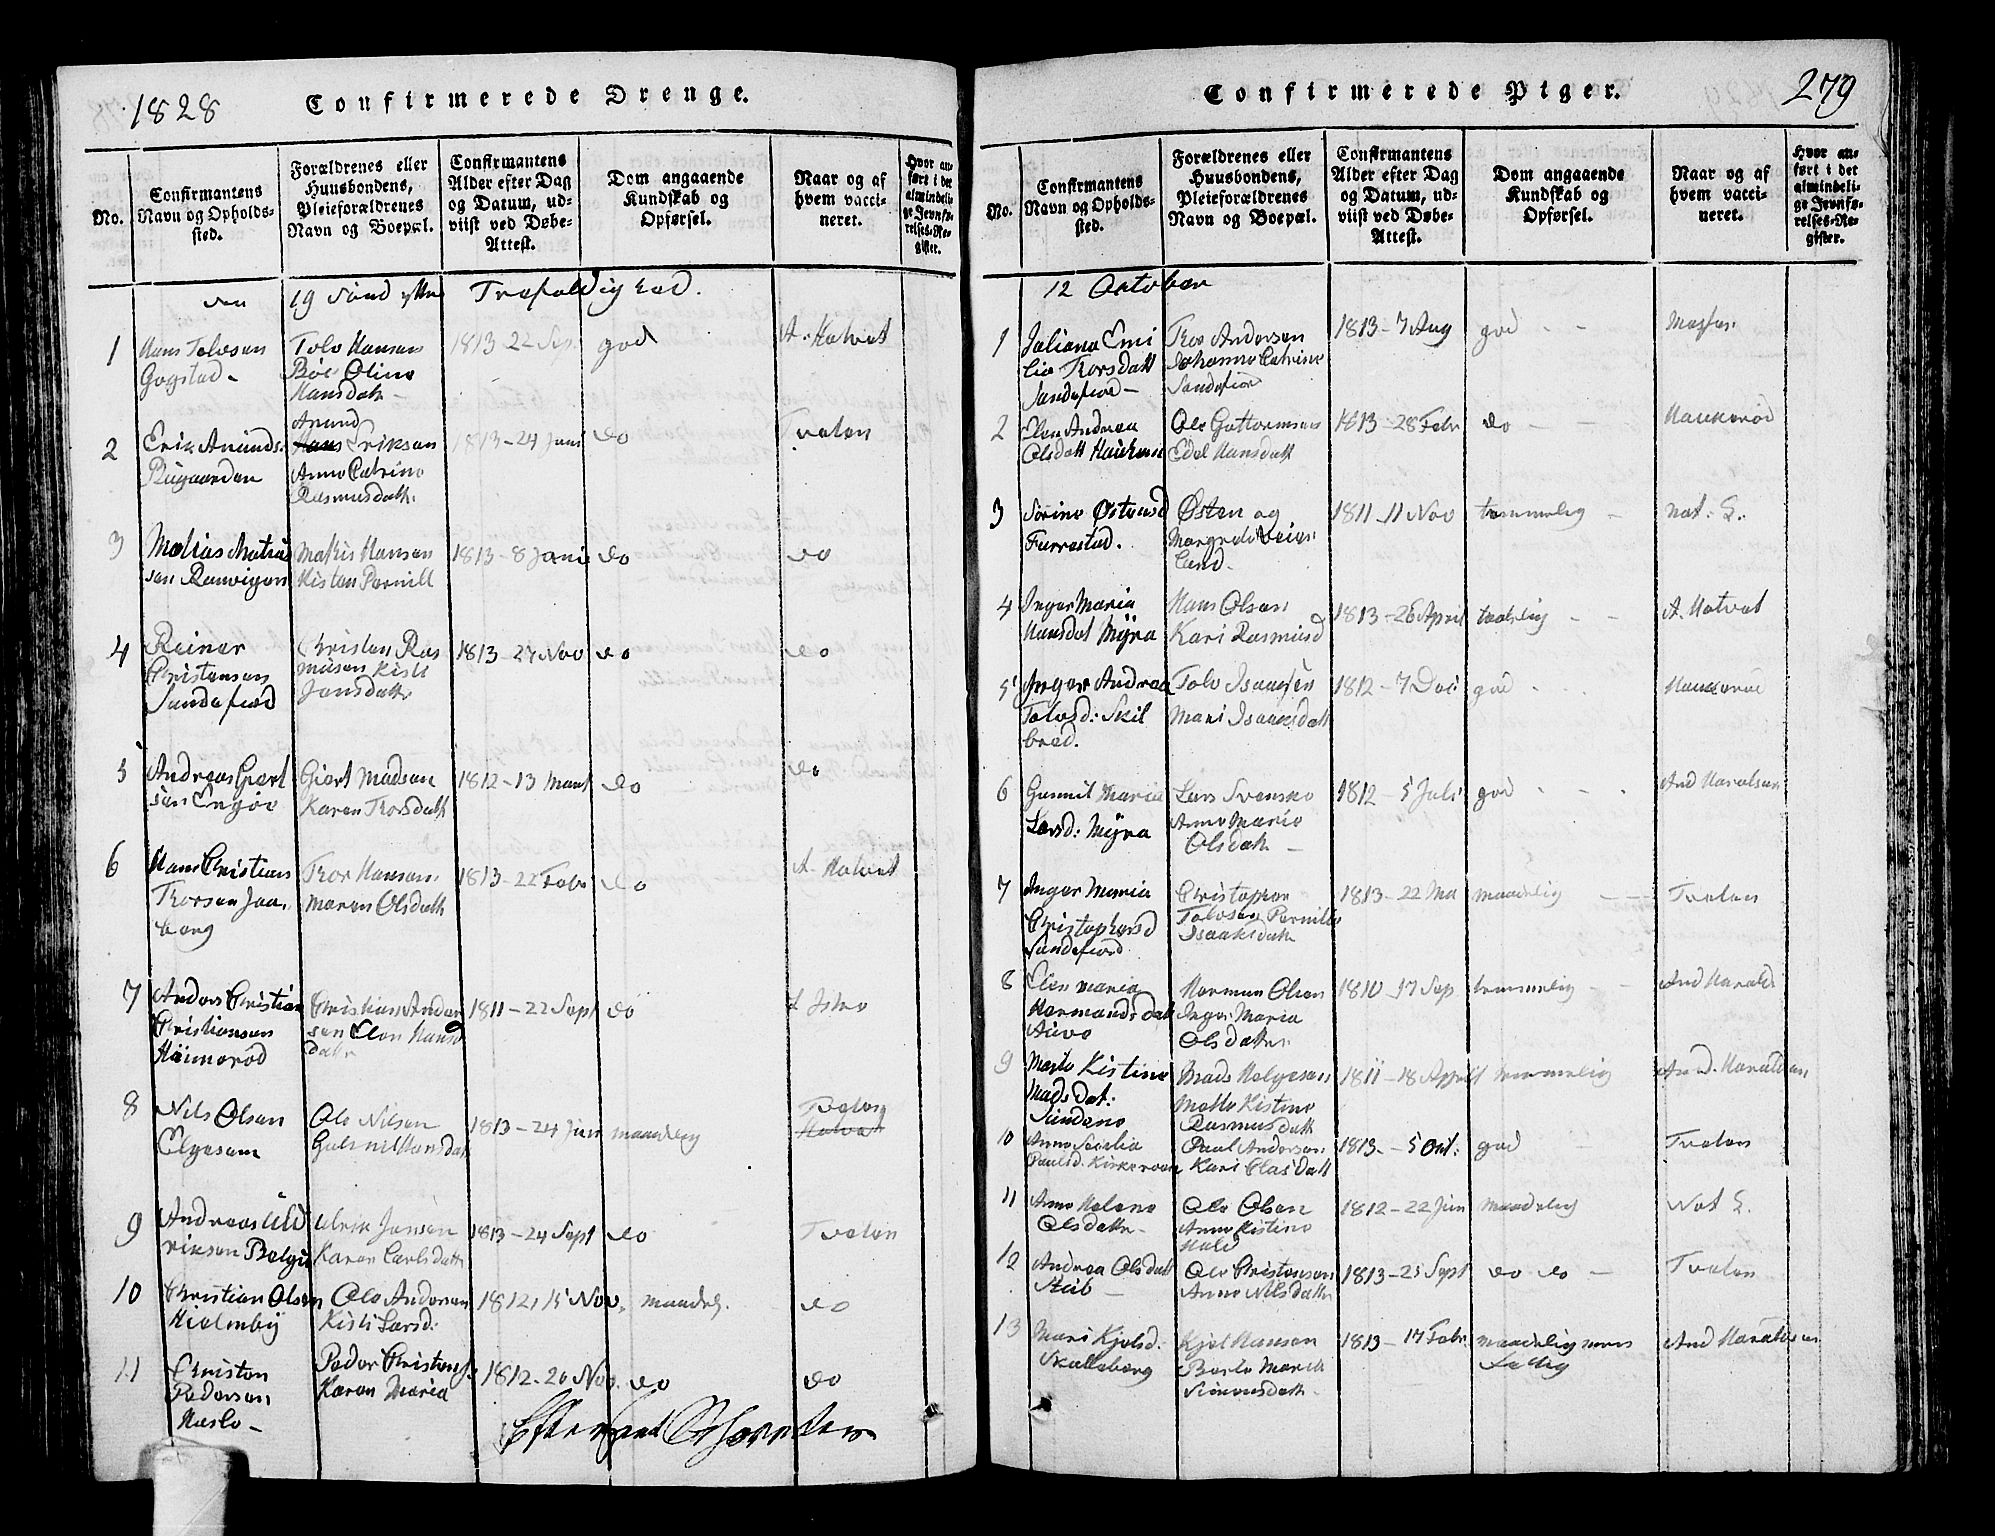 1828 Confirmerede Drenge.
No.
Confirmantens
Navn og Opholds-
sted.
Forældrenes eller
Huusbondens,
Pleieforældrenes
Navn og Boepæl.
Confirmantens
Alder efter Dag
og Datum, ud-
viist ved Døbe-
Attest.
Dom angaaende
Kundskab og
Opførsel.
Naar og af
hvem vacci-
neret.
Hvor an-
ført i det
almindeli-
ge Jevnfø-
relses-Re-
gister.
19 Sønd Trefoldighed.
1
Hans Tolvsen
Gogstad
Tolv Hansen
Bøe Oline
Hansdatt
1813-22 Sep
god
A. Holvat
2
Erik Anunds
Anund
Eriksen
Anne Catrine
Rasmusdatt
1813-24 Juni
do
Tvelen
3
Matias Matis
sen Ranvigen
Mathis Hansen
Kisten Pernill
1813-8 Juni
do
do
4
Reiner
Christensen
Sandefiord
Christen Ras
musen Kisti
Jansdatt
1813-27 Nov
do
do
5
Andreas Giert
sen Engøe
Giert Madsen
Karen Thorsdatt
1812-13 Mart
do
do
6
Hans Christian
Thorsen Jaa
berg
Thor Hansen
Maren Olsdatt
1813-22 Febr
do
A. Holvat
7
Anders Christian
Christiansen
Christian Ander
sen Elen Hans
datt
1811-22 Sept
do
8
Nils Olsen
Elgesem
Ole Nilsen
Gulnil Hansdat
1813-24 Jun
maadelig
Tvelen
Holvat
9
Andreas Uld
riksen Bolge
Ulrik Jansen
Karen Carlsdatt
1813-24 Sept
do
Tvelen
10
Christian Olsen
Hielmby
Ole Andersen
Kisti Larsd:
1812, 15 Nov.
maadel.
do
11
Christen
Pedersen
Hasle
Peder Christens
Karen Maria
1812-20 Nov.
do
do
Confirmerede Piger. 279
No.
Confirmantens
Navn og Opholds-
sted.
Forældrenes eller
Huusbondens,
Pleieforældrenes
Navn og Boepæl.
Confirmantens
Alder efter Dag
og Datum, ud-
viist ved Døbe-
Attest.
Dom angaaende
Kundskab og
Opførsel.
Naar og af
hvem vacci-
neret.
Hvor an-
ført i det
almindeli-
ge Jevnfø-
relses-Re-
gister.
12 October
1
Juliane Emi
lie Thorsdatt
Sandefiord
Thor Andersen
Johanne Catrine
Sandefiord
1813-7 Aug
god
2
Elen Andrea
Olsdatt Haukerø
Ole Guttormsen
Edel Hansdatt
1813-28 Febr
do
Haukerød
3
Sørine Østensd
Furrestad.
Østen og
Margrete Veier
land
1811-11 Nov
temmelig
Nat. E.
4
Inger Maria
Hansdat Myra
Hans Olsen
Kari Rasmusd
1813-26 April
A. Holvat
5
Inger Andrea
Tolvsd: Skil
bred.
Tolv Isaaksen
Mari Isaaksdatt
1812-7 Dec
god
Haukerød
6
Gunnil Maria
Larsd: Myra
Lars Svenske
Anne Marie
Olsdatt
1812-5 Juli
god
And Haralsen
7
Inger Maria
Christophersd
Sandefiord
Christopher
Tolvsen Pernille
Isaaksdatt
1813-22 Ma
maadelig
Tvelen
8
Elen Maria
Hermandsdatt
Herman Olsen
Inger Maria
Olsdatter
1810-17 Sep
temmelig
And Haralds
9
Marte Kistine
Madsdat:
Sundene
Mads Helgesen
Mette Kistine
Rasmusdatt
1811-18 Appril
temmelig
And. Haraldsen
10
Anne Secelia
Paulsd. Kirkeroen
Paul Andersen
Kari Olasdatt
1813.-5 Oct:
god
Tvelen
11
Anne Helene
Olsdatt
Ole Olsen
Anne Kistine
1812-22 Jun
maadelig
Nat E
12
Andrea Olsdatt
Stub
Ole Christensen
Anne Nilsdatt
1813-25 Sept
do do
Tvelen
13
Mari Kjelsd.
Skalleberg
Kjel Hansen
Berte Marie
Simonsdatt
1813-17 Febr
maadelig
And Haraldsen